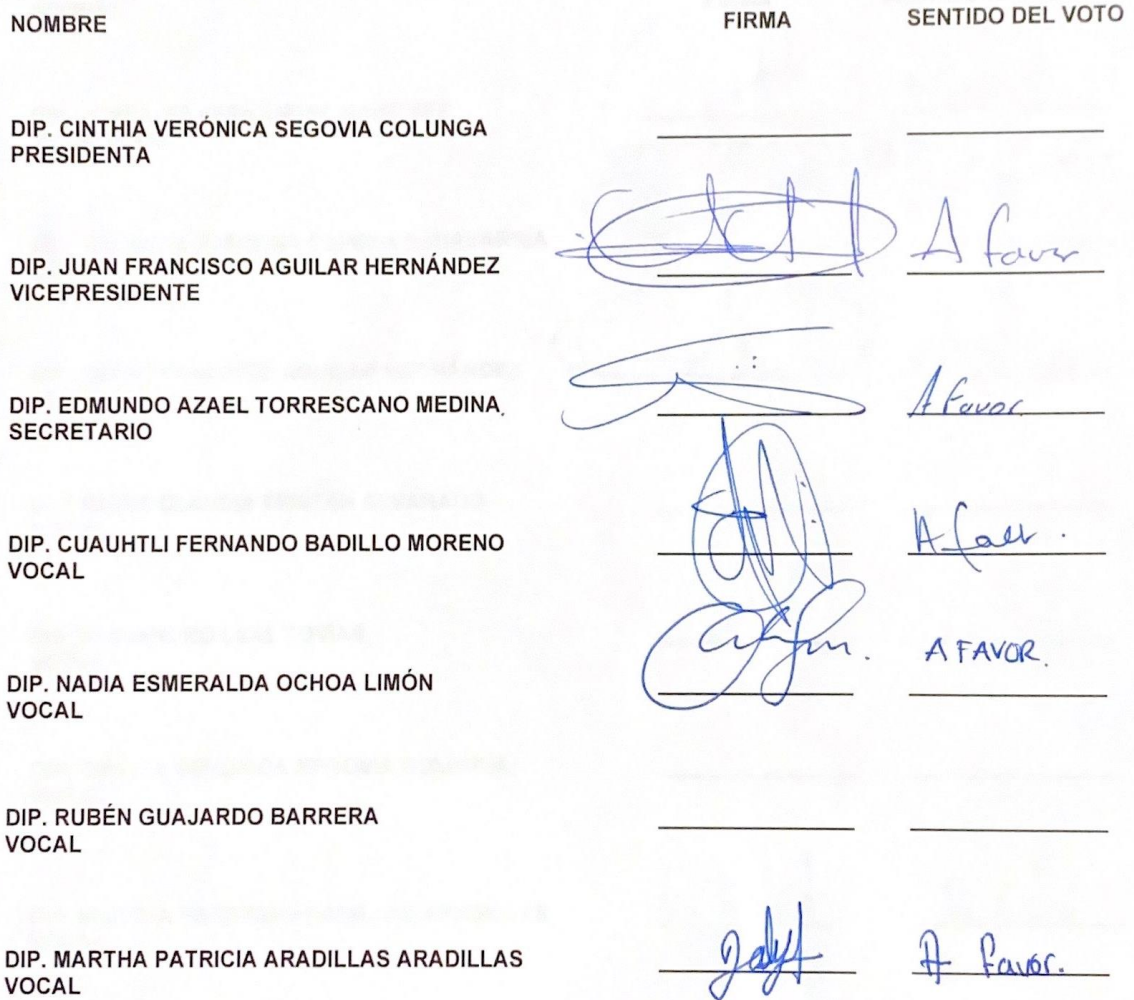 NOMBRE FIRMA SENTIDO DEL VOTO
DIP. CINTHIA VERÓNICA SEGOVIA COLUNGA
PRESIDENTA
DIP. JUAN FRANCISCO AGUILAR HERNÁNDEZ A favor
VICEPRESIDENTE
DIP. EDMUNDO AZAEL TORRESCANO MEDINA, A Favor.
SECRETARIO
DIP. CUAUHTLI FERNANDO BADILLO MORENO A favor.
VOCAL
DIP. NADIA ESMERALDA OCHOA LIMÓN A FAVOR.
VOCAL
DIP. RUBÉN GUAJARDO BARRERA
VOCAL
DIP. MARTHA PATRICIA ARADILLAS ARADILLAS A favor.
VOCAL